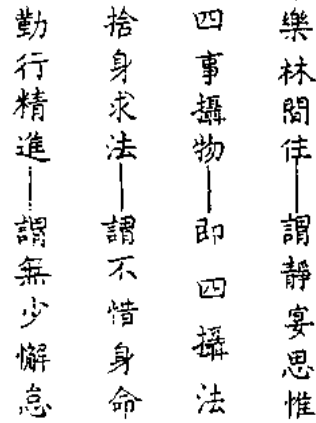 樂林間住——謂靜宴思惟
四事攝物——即四攝法
捨身求法——謂不惜身命
勤行精進——謂無少懈怠